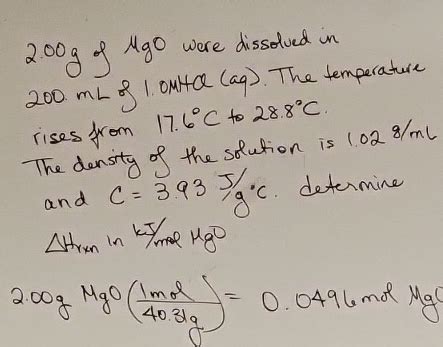 2.00g of MgO were dissolved in
200. mL of 1.0M HCl (aq). The temperature
rises from 17.6°C to 28.8°C.
The density of the solution is 1.02 g/mL
and C = 3.93 J/g°C. determine
ΔHrxn in kJ/mol MgO
2.00g MgO (1mol/40.31g) = 0.0496mol MgO